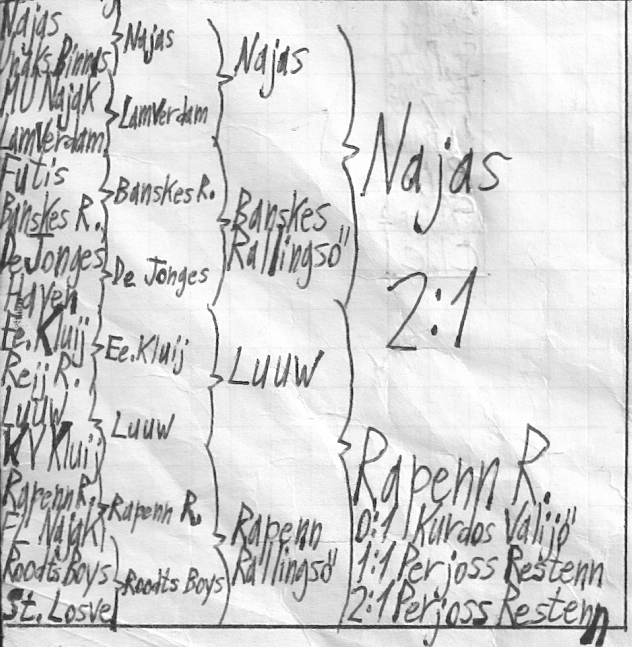 Najas
Unaks Pinnas
MU Najak
LamVerdam
Futis
Banskes R.
De Jonges
Haven
Ee. Kluij
Reij R.
Luuw
KV Kluij
Rapenn R.
FF Najaki
Roodts Boys
St. Losvel
Najas
LamVerdam
Banskes R.
De Jonges
Ee. Kluij
Luuw
Rapenn R.
Roodts Boys
Najas
Banskes
Rallingsö
Luuw
Rapenn
Rallingsö
Najas
2:1
Rapenn R.
0:1 Kurdos Valijö
1:1 Perjoss Restenn
2:1 Perjoss Restenn